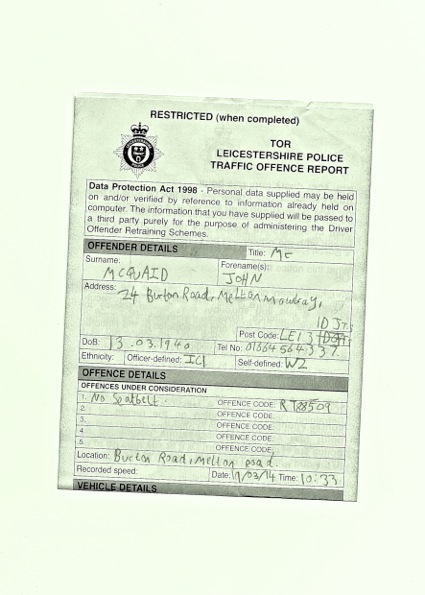 RESTRICTED (when completed)
TOR
LEICESTERSHIRE POLICE
TRAFFIC OFFENCE REPORT
Data Protection Act 1998 - Personal data supplied may be held
on and/or verified by reference to information already held on
computer. The information that you have supplied will be passed to
a third party purely for the purpose of administering the Driver
Offender Retraining Schemes.
OFFENDER DETAILS Title: Mr
Surname: Forename(s):
MCQUAID JOHN
Address: 24 Burton Road, Melton Mowbray,
Post Code: LE13 1DJ
DoB: 13.03.1940 Tel No: 01664 564337.
Ethnicity: Officer-defined: IC1 Self-defined: W2
OFFENCE DETAILS
OFFENCES UNDER CONSIDERATION
1. No Seatbelt. OFFENCE CODE:
2. OFFENCE CODE:
3. OFFENCE CODE:
4. OFFENCE CODE:
5. OFFENCE CODE:
Location: Burton Road, Melton road.
Recorded speed: Date: /03/14 Time: 10:33
VEHICLE DETAILS